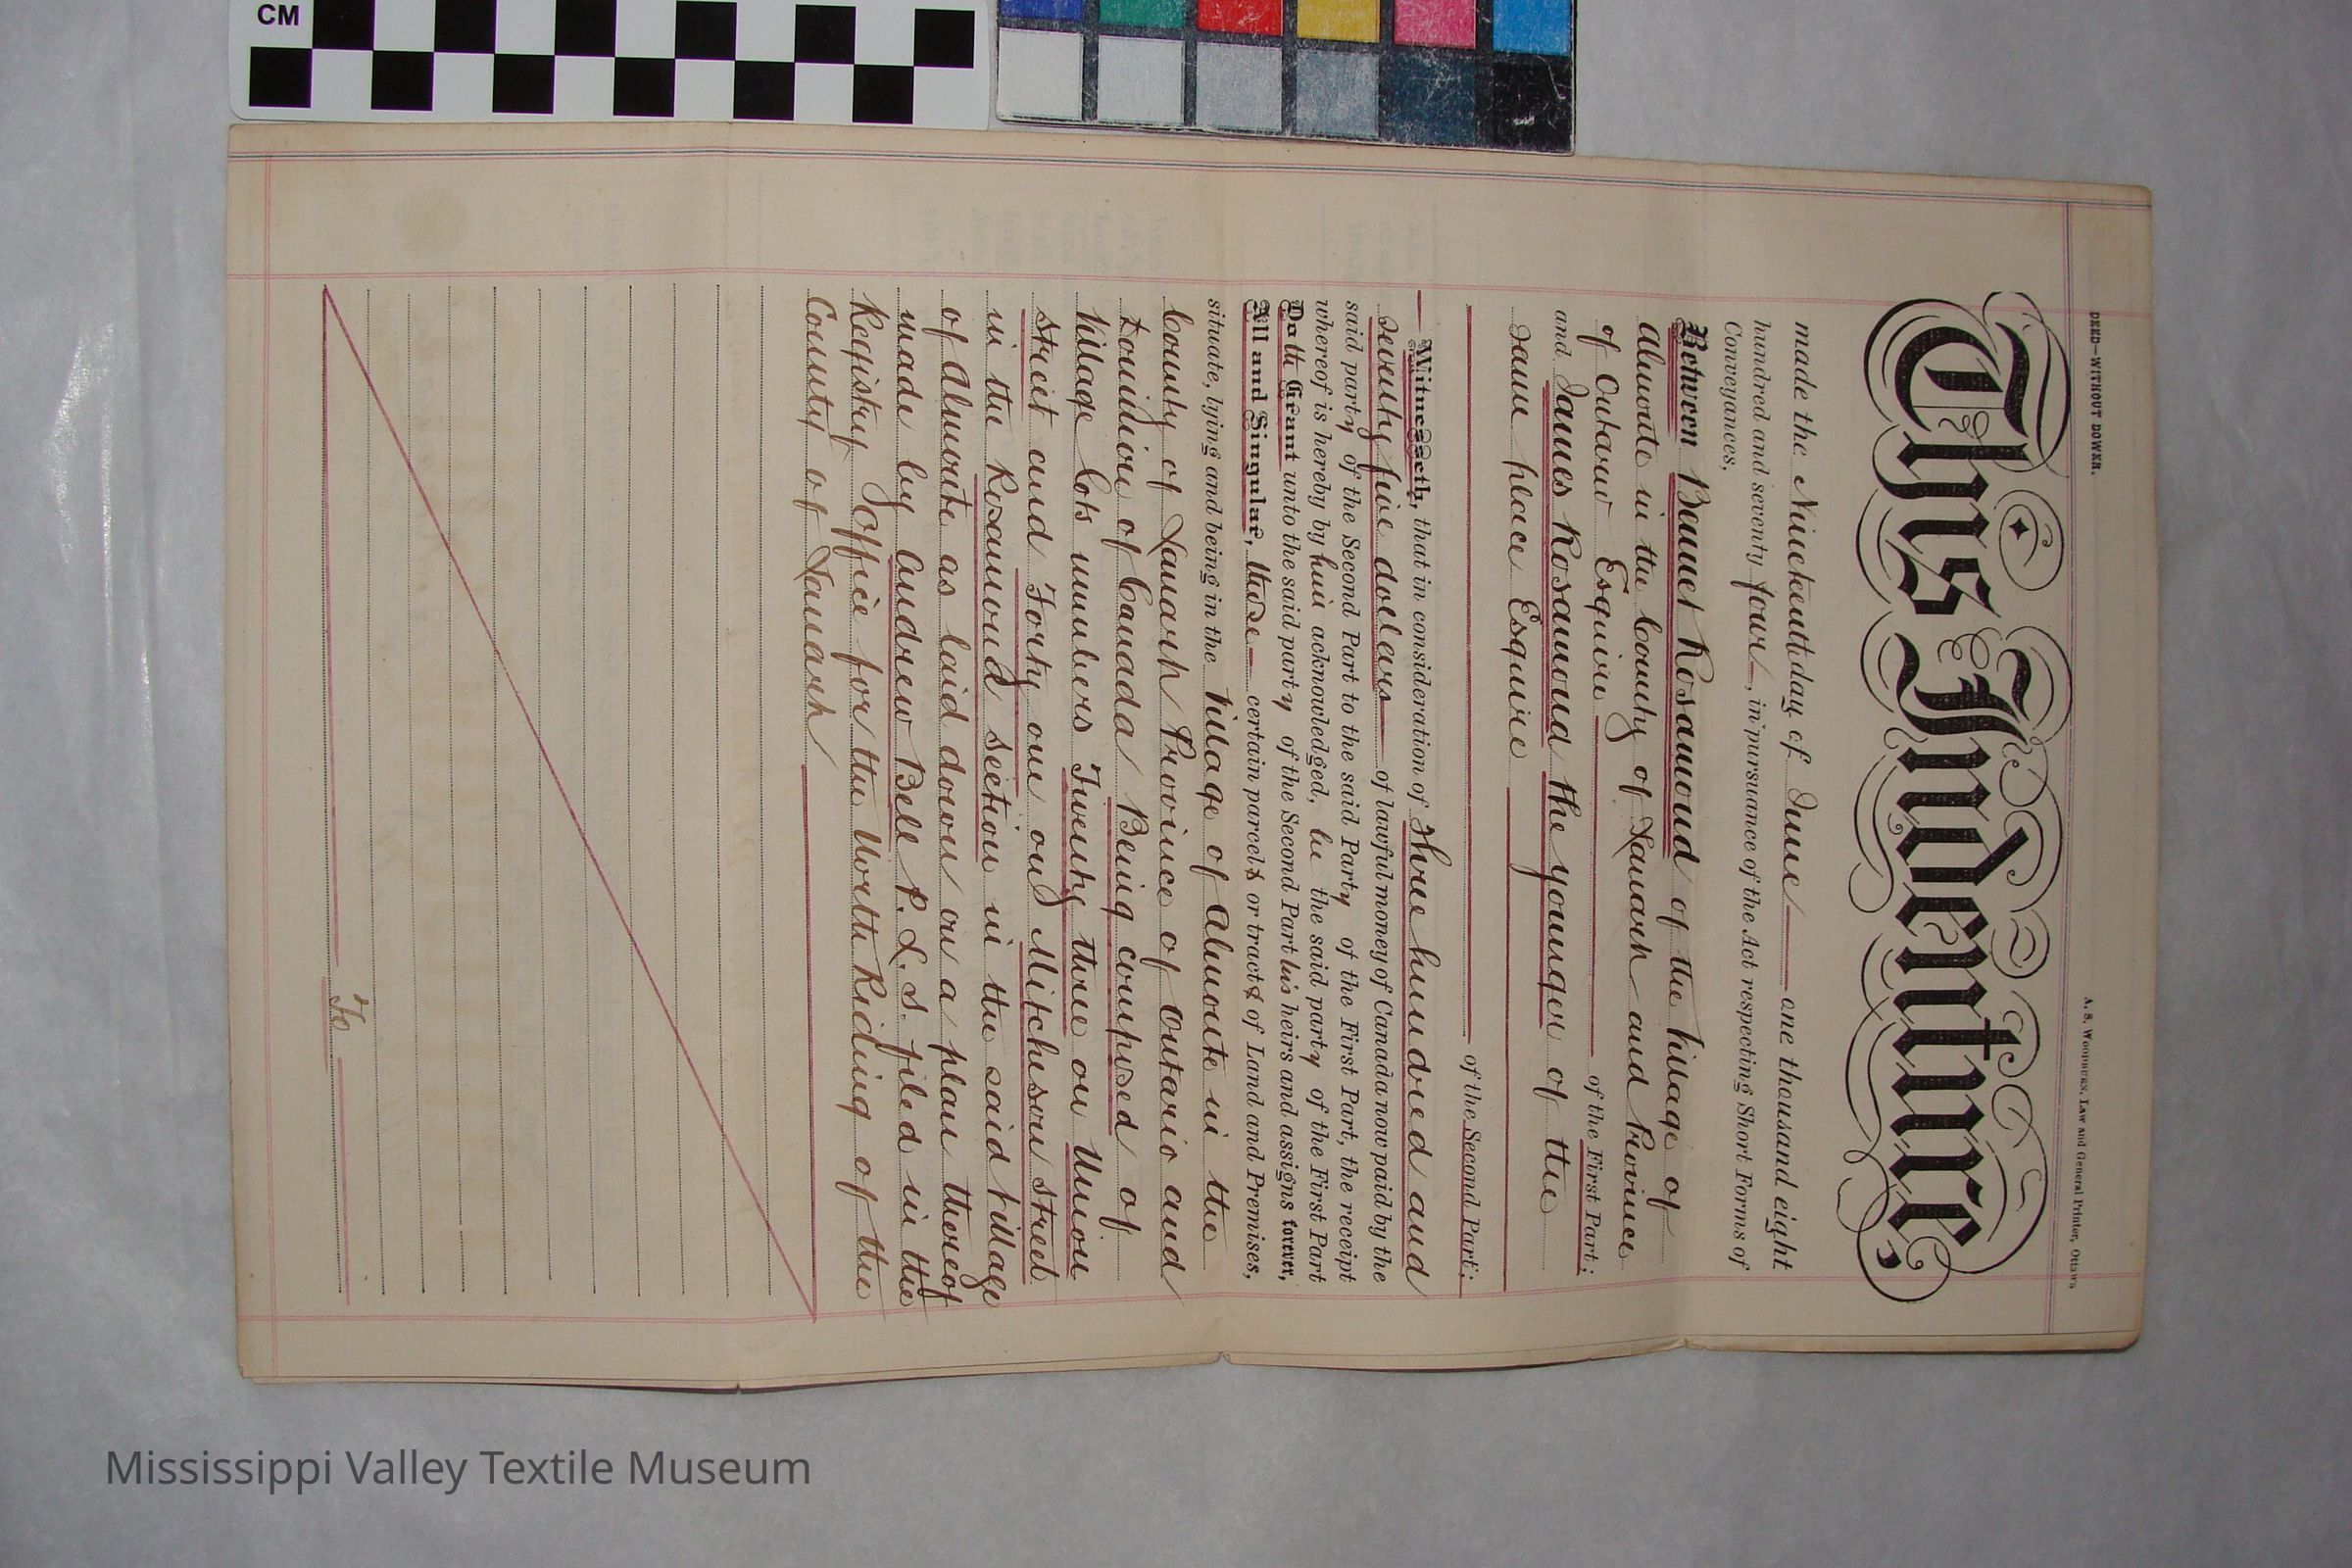 CM
DEED—WITHOUT DOWER.
A. S. WOODBURN, Law and General Printer, Ottawa
This Indenture
made the Nineteenth day of June one thousand eight
hundred and seventy four, in pursuance of the Act respecting Short Forms of
Conveyances,
Between Bennet Rosamond of the Village of
Almonte in the County of Lanark and Province
of Ontario Esquire of the First Part;
and James Rosamond the younger of the
same place Esquire
of the Second Part;
Witnesseth, that in consideration of Three hundred and
seventy five dollars of lawful money of Canada now paid by the
said party of the Second Part to the said Party of the First Part, the receipt
whereof is hereby by him acknowledged, he the said party of the First Part
Doth Grant unto the said party of the Second Part his heirs and assigns forever,
All and Singular, those certain parcels or tracts of Land and Premises,
situate, lying and being in the Village of Almonte in the
County of Lanark Province of Ontario and
Dominion of Canada Being composed of
Village Lots numbers Twenty three on Union
street and Forty one on Mitcheson street
in the Rosamond section in the said Village
of Almonte as laid down on a plan thereof
made by Andrew Bell P. L. S. filed in the
Registry Office for the North Riding of the
County of Lanark
To
Mississippi Valley Textile Museum